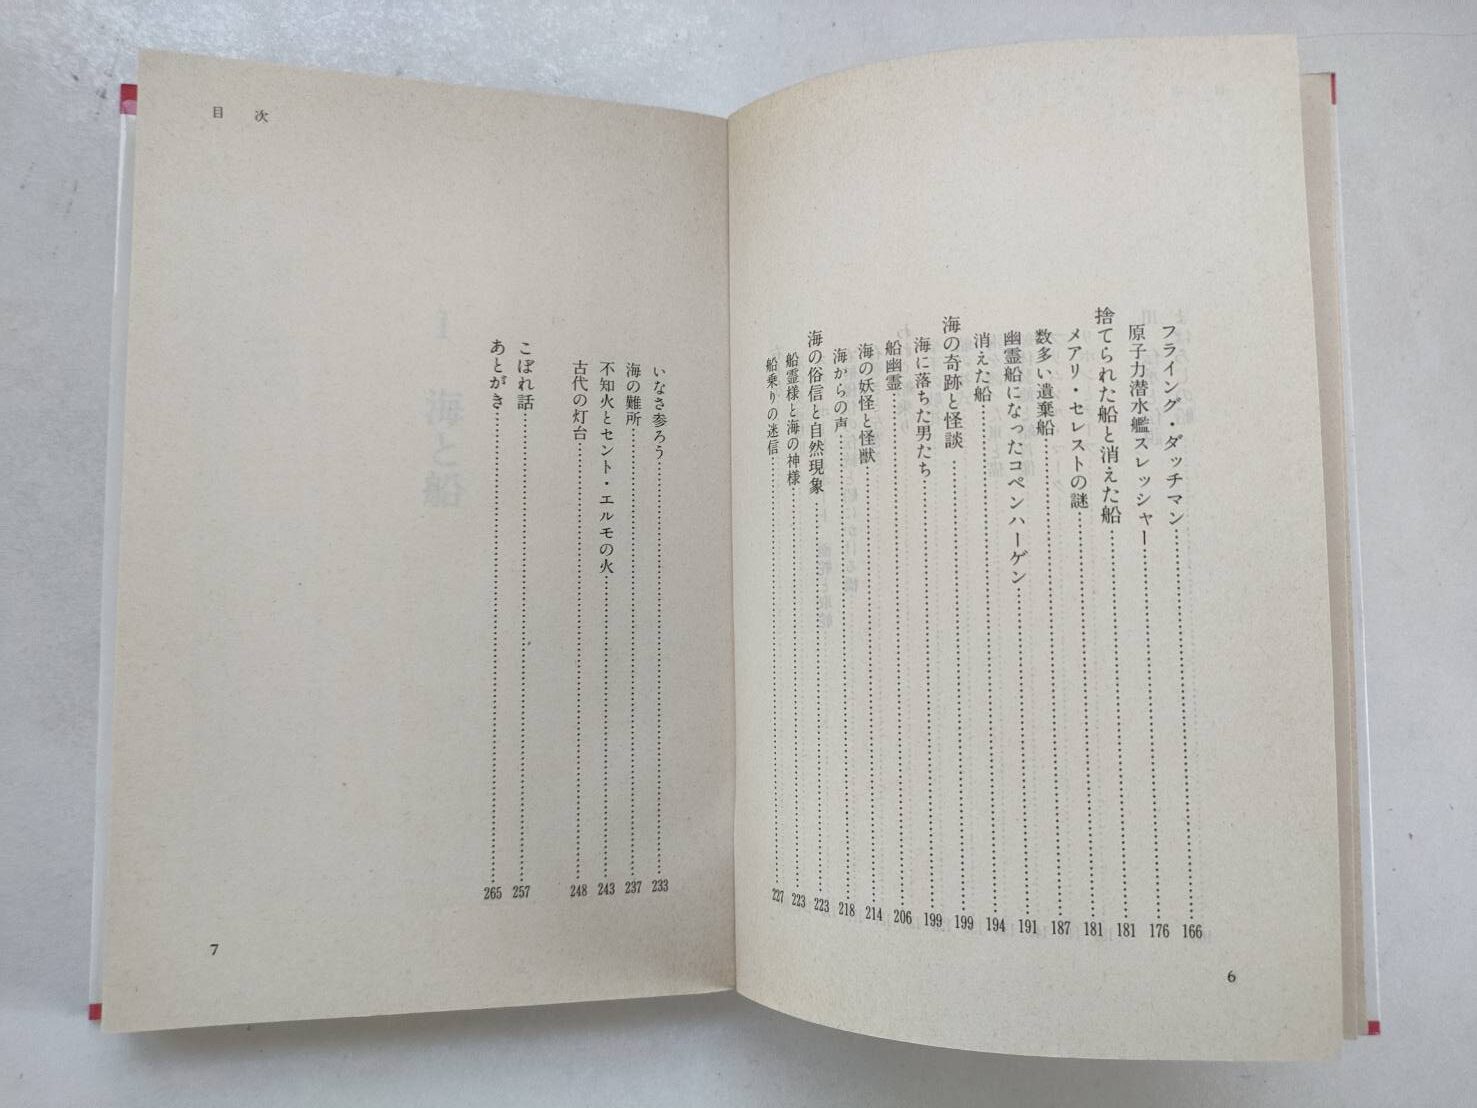 フライング・ダッチマン……166
原子力潜水艦スレッシャー……176
捨てられた船と消えた船……181
メアリ・セレストの謎……181
数多い遺棄船……187
幽霊船になったコペンハーゲン……191
消えた船……194
海の奇跡と怪談……199
海に落ちた男たち……199
船幽霊……206
海の妖怪と怪獣……214
海からの声……218
海の俗信と自然現象……223
船霊様と海の神様……223
船乗りの迷信……227
6
目次
いなさ参ろう……233
海の難所……237
不知火とセント・エルモの火……243
古代の灯台……248
こぼれ話……257
あとがき……265
7